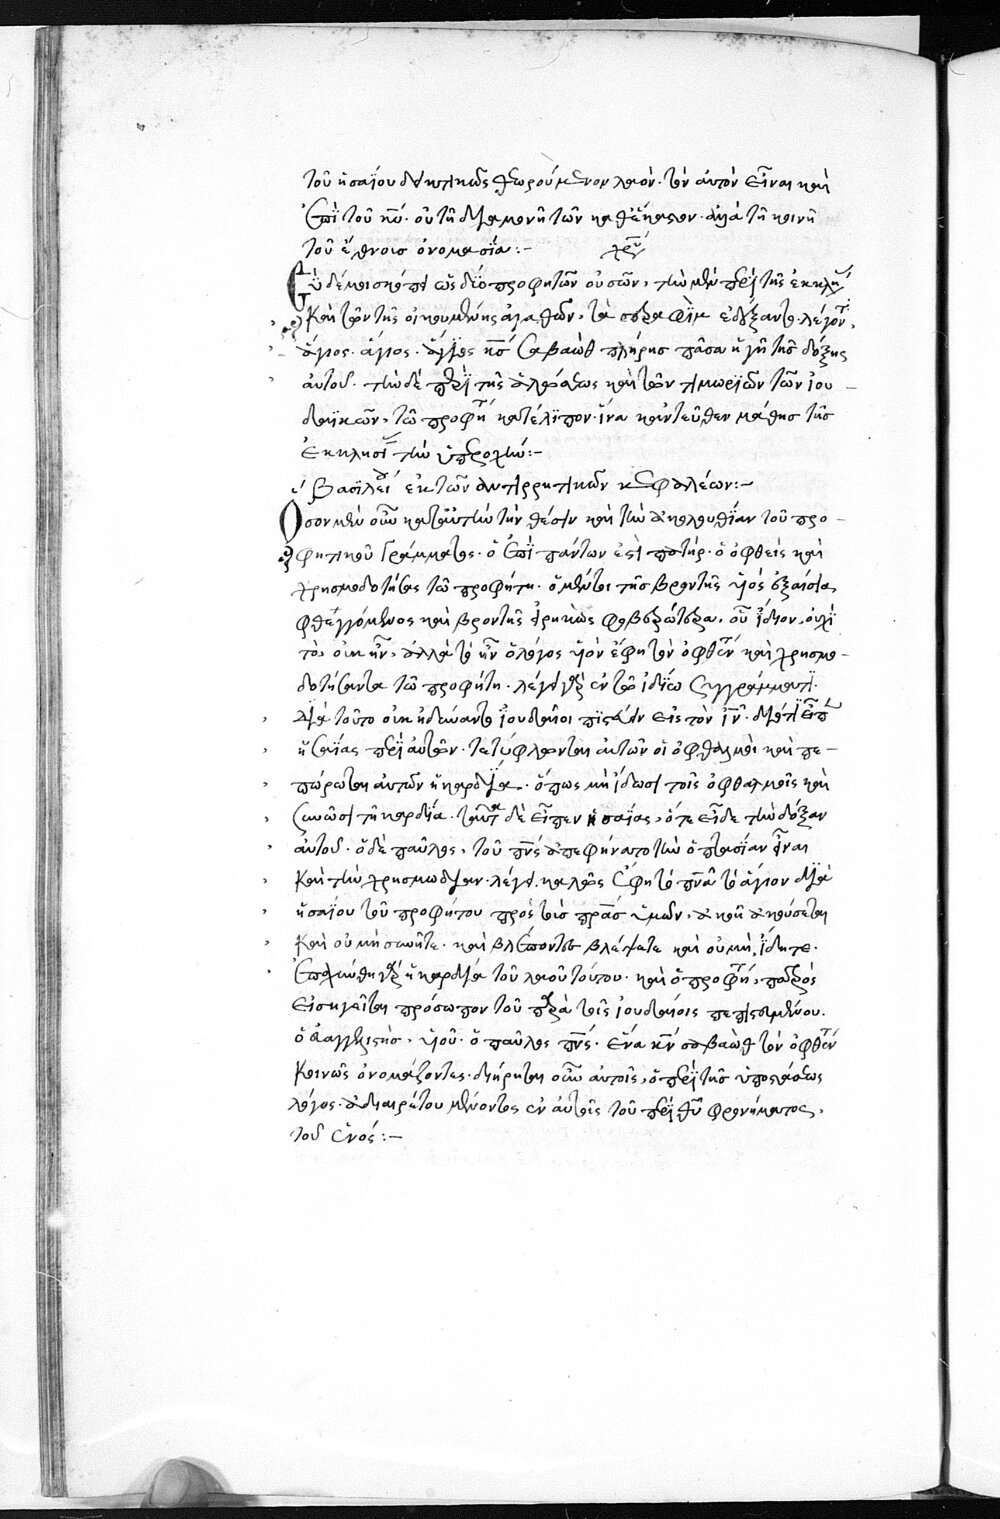 τοῦ ἡσαΐου δεικτικῶς θεωρούμενον λαόν· τὸν αὐτὸν εἶναι καὶ
ἐπὶ τοῦ κυ· οὐ τῆ διαμονῆ τῶν καθέκαστον· ἀλλὰ τῆ κοινῆ
τοῦ ἔθνους ὀνομασία:-
σὺ δέ μοι σκόπει ὡς δύο προφητῶν οὐσῶν, τὴν μὲν περὶ τῆς ἐκκλη
καὶ τῶν τῆς οἰκουμένης ἀγαθῶν, τὰ σεραφὶμ ἐδέξαντο λέγοντ
ἅγιος· ἅγιος· ἅγιος κς σαβαὼθ πλήρης πᾶσα ἡ γῆ τῆς δόξης
αὐτοῦ· τὴν δὲ περὶ τῆς ἁλώσεως καὶ τῶν τιμωριῶν τῶν ἰου-
δαϊκῶν, τῶ προφη κατέλιπον· ἵνα κἀντεῦθεν μάθης τῆς
ἐκκλησι τὴν ὑπεροχήν:-
Βασιλεί ἐκ τῶν ἀντιρρητικῶν κεφαλέων:-
Ὅσον μὲν οὖν κατὰ ταύτην τὴν θέσιν καὶ τὴν ἀκολουθίαν τοῦ προ-
φητικοῦ γράμματος· ὁ ἐπὶ πάντων ἐστὶ πατήρ· ὁ ὀφθεὶς καὶ
χρησμοδοτήσας τῶ προφήτη· ὁ μέντοι τῆς βροντῆς υἱὸς ἐξαίσια
φθεγγόμενος καὶ βροντῆς φοβερώτερα, οὗ ἴδιον, οὐχὶ
τὸ, οὐκ ἦν, ἀλλὰ τὸ ἦν ὁ λόγος υἱὸν ἔφη τὸν ὀφθέντ καὶ χρησμο-
δοτήσαντα τῶ προφήτη· λέγει γὰρ ἐν τῶ ἰδίω συγγράμματι·
διὰ τοῦτο οὐκ ἠδύναντο ἰουδαῖοι πιστεύειν εἰς τὸν ιν· διότι εἶπ
ἡσαΐας περὶ αὐτῶν· τετύφλωνται αὐτῶν οἱ ὀφθαλμοὶ καὶ πε-
πώρωται αὐτῶν ἡ καρδία· ὅπως μὴ ἴδωσι τοῖς ὀφθαλμοῖς καὶ
συνῶσι τῆ καρδία· ταῦτα δὲ εἶπεν ἡσαΐας, ὅτε εἶδε τὴν δόξαν
αὐτοῦ· ὁ δὲ παῦλος, τοῦ πνς ἀπεφήνατο τὴν ὀπτασίαν εἶναι
καὶ τὴν χρησμωδίαν· λέγει, καλῶς ἔφη τὸ πνα τὸ ἅγιον διὰ
ἡσαΐου τοῦ προφήτου πρὸς τοὺς πρας ὑμῶν, ἀκοῆ ἀκούσεται
καὶ οὐ μὴ συνῆτε· καὶ βλέποντες βλέψετε καὶ οὐ μὴ ἴδητε·
ἐπαχύνθη γὰρ ἡ καρδία τοῦ λαοῦ τούτου· καὶ ὁ προφη, πατρὸς
εἰσηγεῖται πρόσωπον τοῦ παρὰ τοῖς ἰουδαίοις πεπιστευμένου·
ὁ εὐαγγελιστὴς, υἱοῦ· ὁ παῦλος πνς· ἕνα κν σαβαὼθ τὸν ὀφθέντ
κοινῶς ὀνομάζοντες· διήρηται οὖν αὐτοῖς, ὁ περὶ τῆς ὑποστάσεως
λόγος· ἀδιαιρέτου μένοντος ἐν αὐτοῖς τοῦ περὶ θυ φρονήματος,
τοῦ ἑνός:-